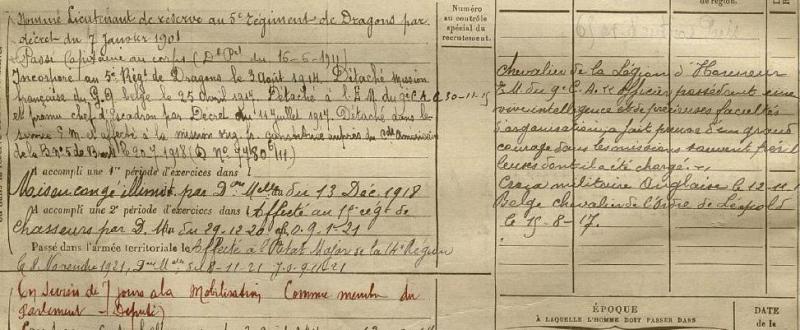 Nommé Lieutenant de réserve au 5e Régiment de Dragons par
décret du 7 Janvier 1901
Passé Capitaine au corps (D. Pel du 16-6-1911)
Incorporé au 5e Régt de Dragons le 3 Août 1914. Détaché Mission
française du G.Q. belge le 25 avril 1917. Détaché à l'E.M. du 9e C.A. le 30-11-15
et promu chef d'Escadron par Décret du 11 Juillet 1917. Détaché dans le
service E.M. et affecté à la mission
de la
A accompli une 1re période d'exercices dans
Mis en congé illimité par D. Mlle du 13 Déc. 1918
A accompli une 2e période d'exercices dans Affecté au 1er régt de
chasseurs par D. Mlle du 29-12-20 J.O. 9-1-21
Passé dans l'armée territoriale le Affecté à l'Etat Major de la 14e Région
le 8 Novembre 1921, Don Mlle du 8-11-21 J.O. 9-11-21
En sursis de 7 jours à la Mobilisation, Comme membre du
Parlement - (Député)
Numéro
au contrôle
spécial du
recrutement.
de région.
Chevalier de la Légion d'Honneur
E.M. du 9e C.A. Officier possédant une
vive intelligence et de précieuses facultés
d'organisation, a fait preuve d'un grand
courage dans les missions souvent péril
leuses dont il a été chargé.
Croix militaire Anglaise le 12-11-
Belge chevalier de l'Ordre de Léopold
le 15-8-17.
ÉPOQUE
À LAQUELLE L'HOMME DOIT PASSER DANS
DATE
de la